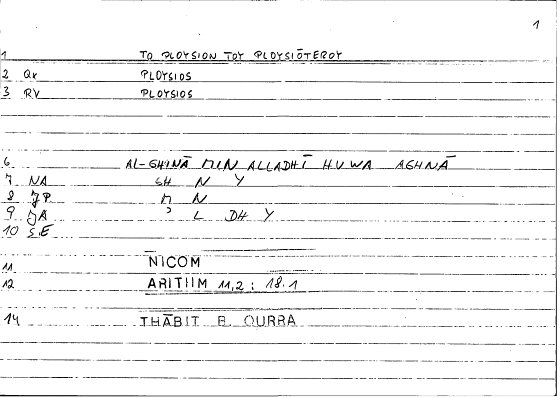 1
1 TO PLOYSION TOY PLOYSIŌTEROY
2 Qr PLOYSIOS
3 RV PLOYSIOS
6 AL-GHINĀ MIN ALLADHĪ HUWA AGHNĀ
7 NA GH N Y
8 JP M N
9 JA ' L DH Y
10 SE
11 NICOM
12 ARITIIM 11,2 : 18.1
14 THĀBIT B QURRA